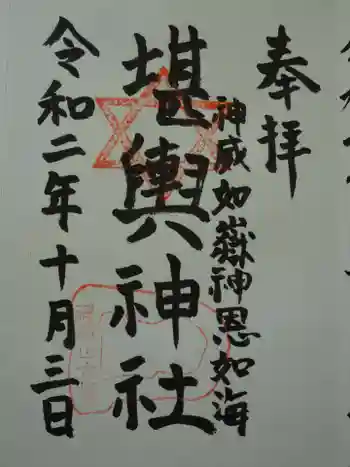 奉拝
神威如嶽神恩如海
堪輿神社
令和二年十月三日